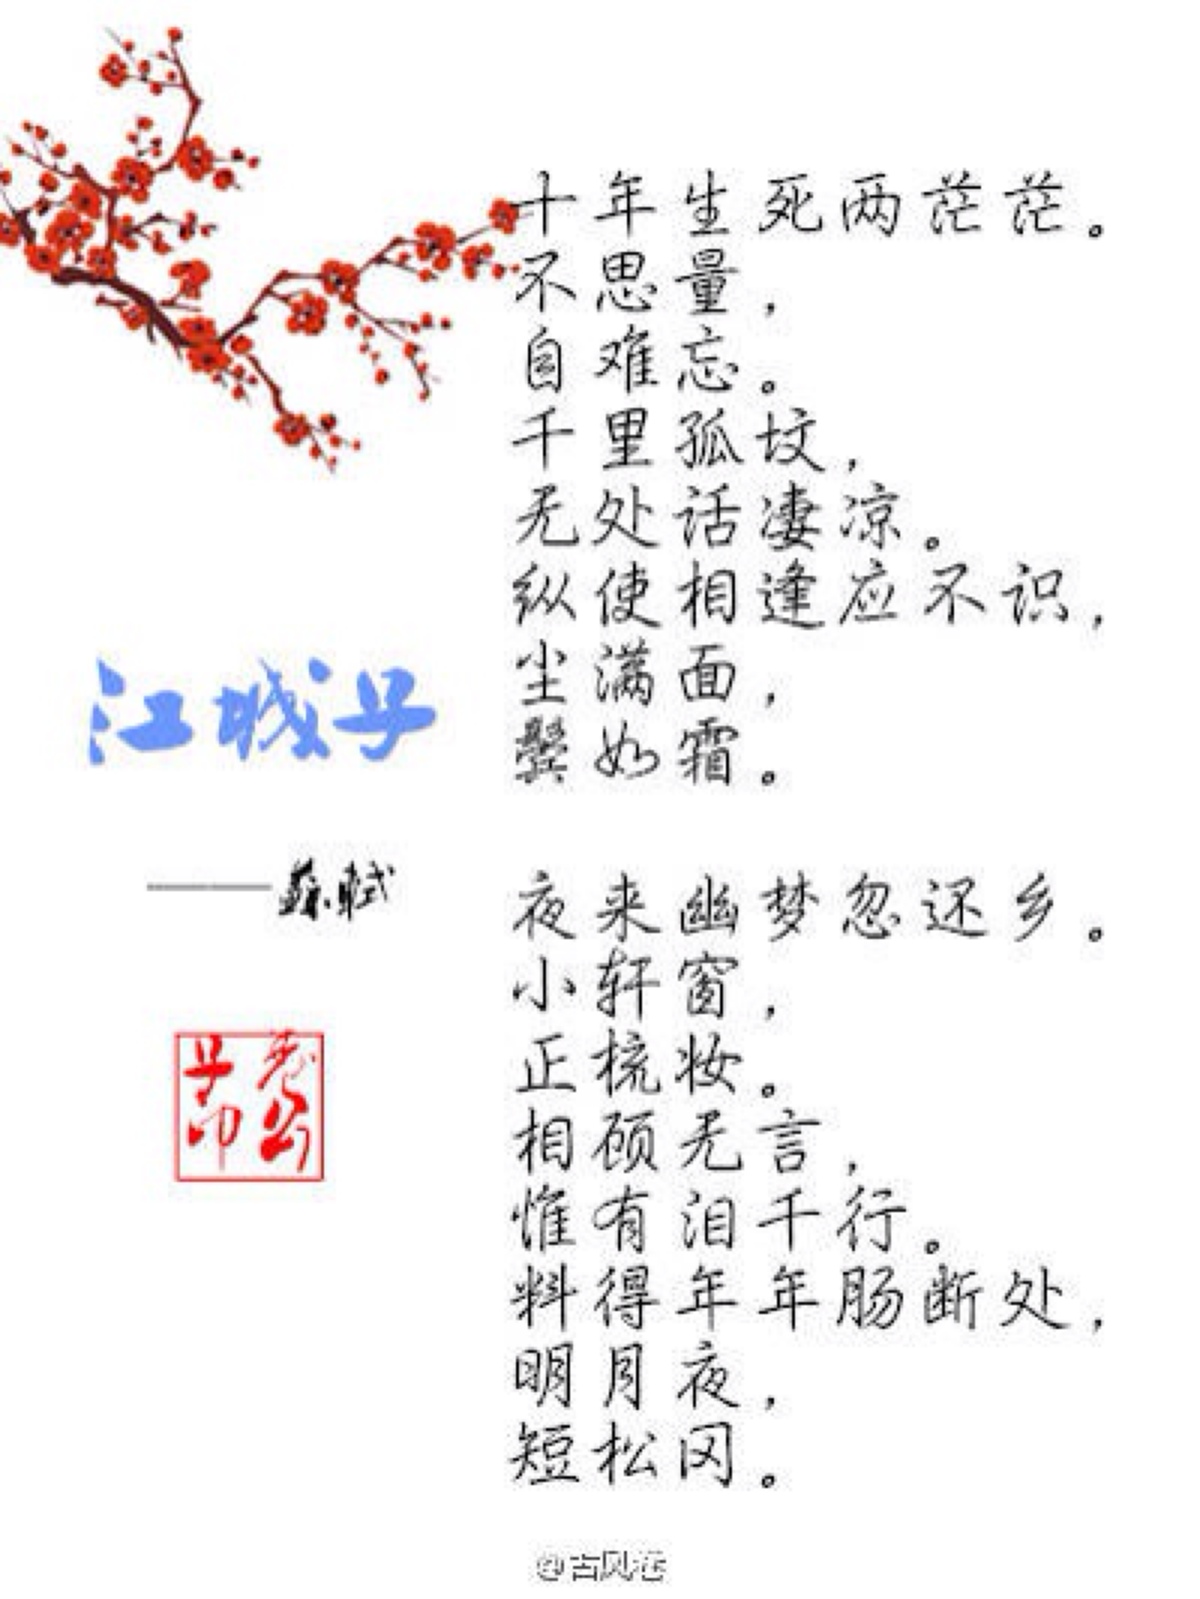 十年生死两茫茫。
不思量，
自难忘。
千里孤坟，
无处话凄凉。
纵使相逢应不识，
尘满面，
鬓如霜。
江城子
——蘇軾
夜来幽梦忽还乡。
小轩窗，
正梳妆。
相顾无言，
惟有泪千行。
料得年年肠断处，
明月夜，
短松冈。
@古风卷